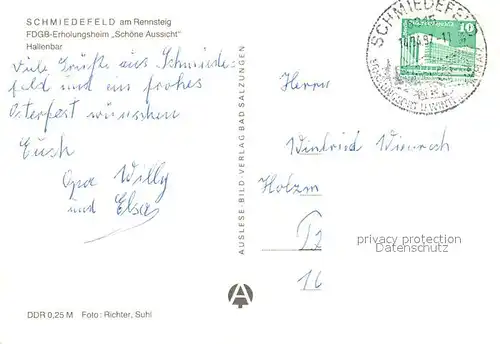 SCHMIEDEFELD am Rennsteig
FDGB-Erholungsheim „Schöne Aussicht"
Hallenbar
Viele Grüße aus Schmiede-
feld und ein frohes
Osterfest wünschen
Euch
Opa Willy
und Elsa
DDR 0,25 M Foto: Richter, Suhl
AUSLESE-BILD-VERLAG BAD SALZUNGEN
SCHMIEDEFELD
10
Herrn
Winfried
Holzm
16
privacy protection
watermark